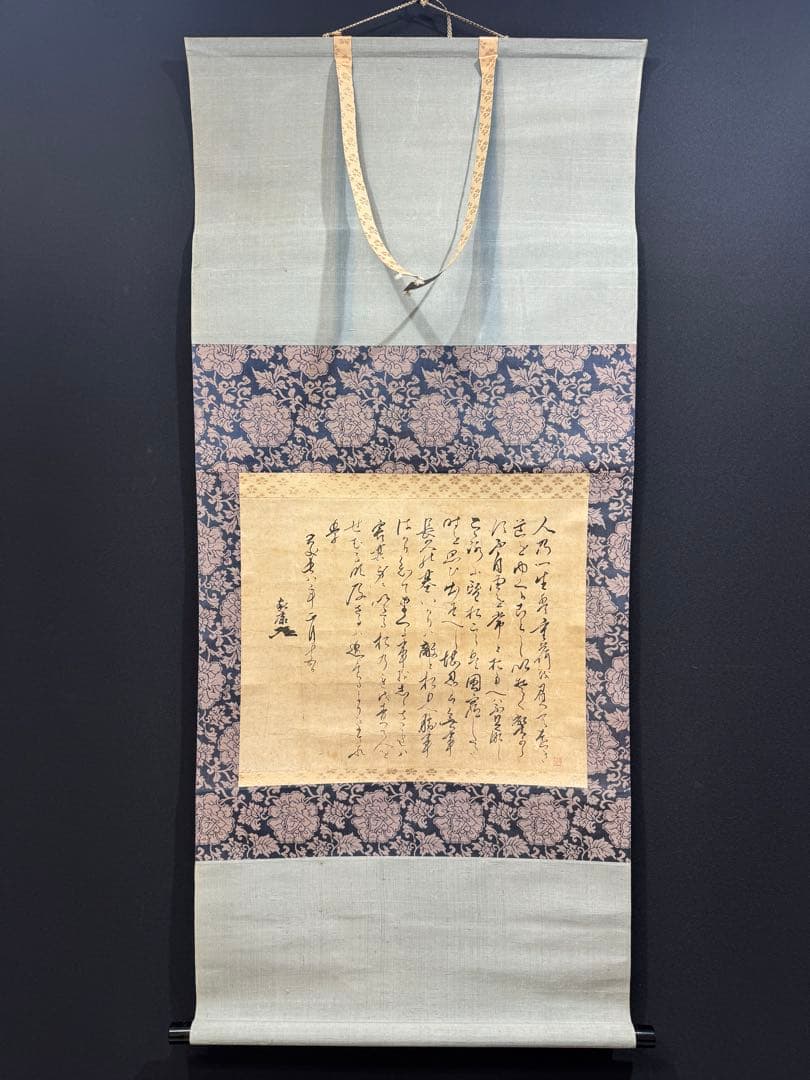 人乃一生は重荷を負て遠き
道をゆくかことしいそくへから
す不自由を常とおもへは不足なし
こゝろに望おこらは困窮したる
時を思ひ出すへし堪忍は無事
長久の基いかりは敵とおもへ勝事
はかり知てまくる事をしらされは
害其身にいたるおのれを責て人を
せむるな及さるは過たるよりまされ
り
慶長八年正月十五日
家康